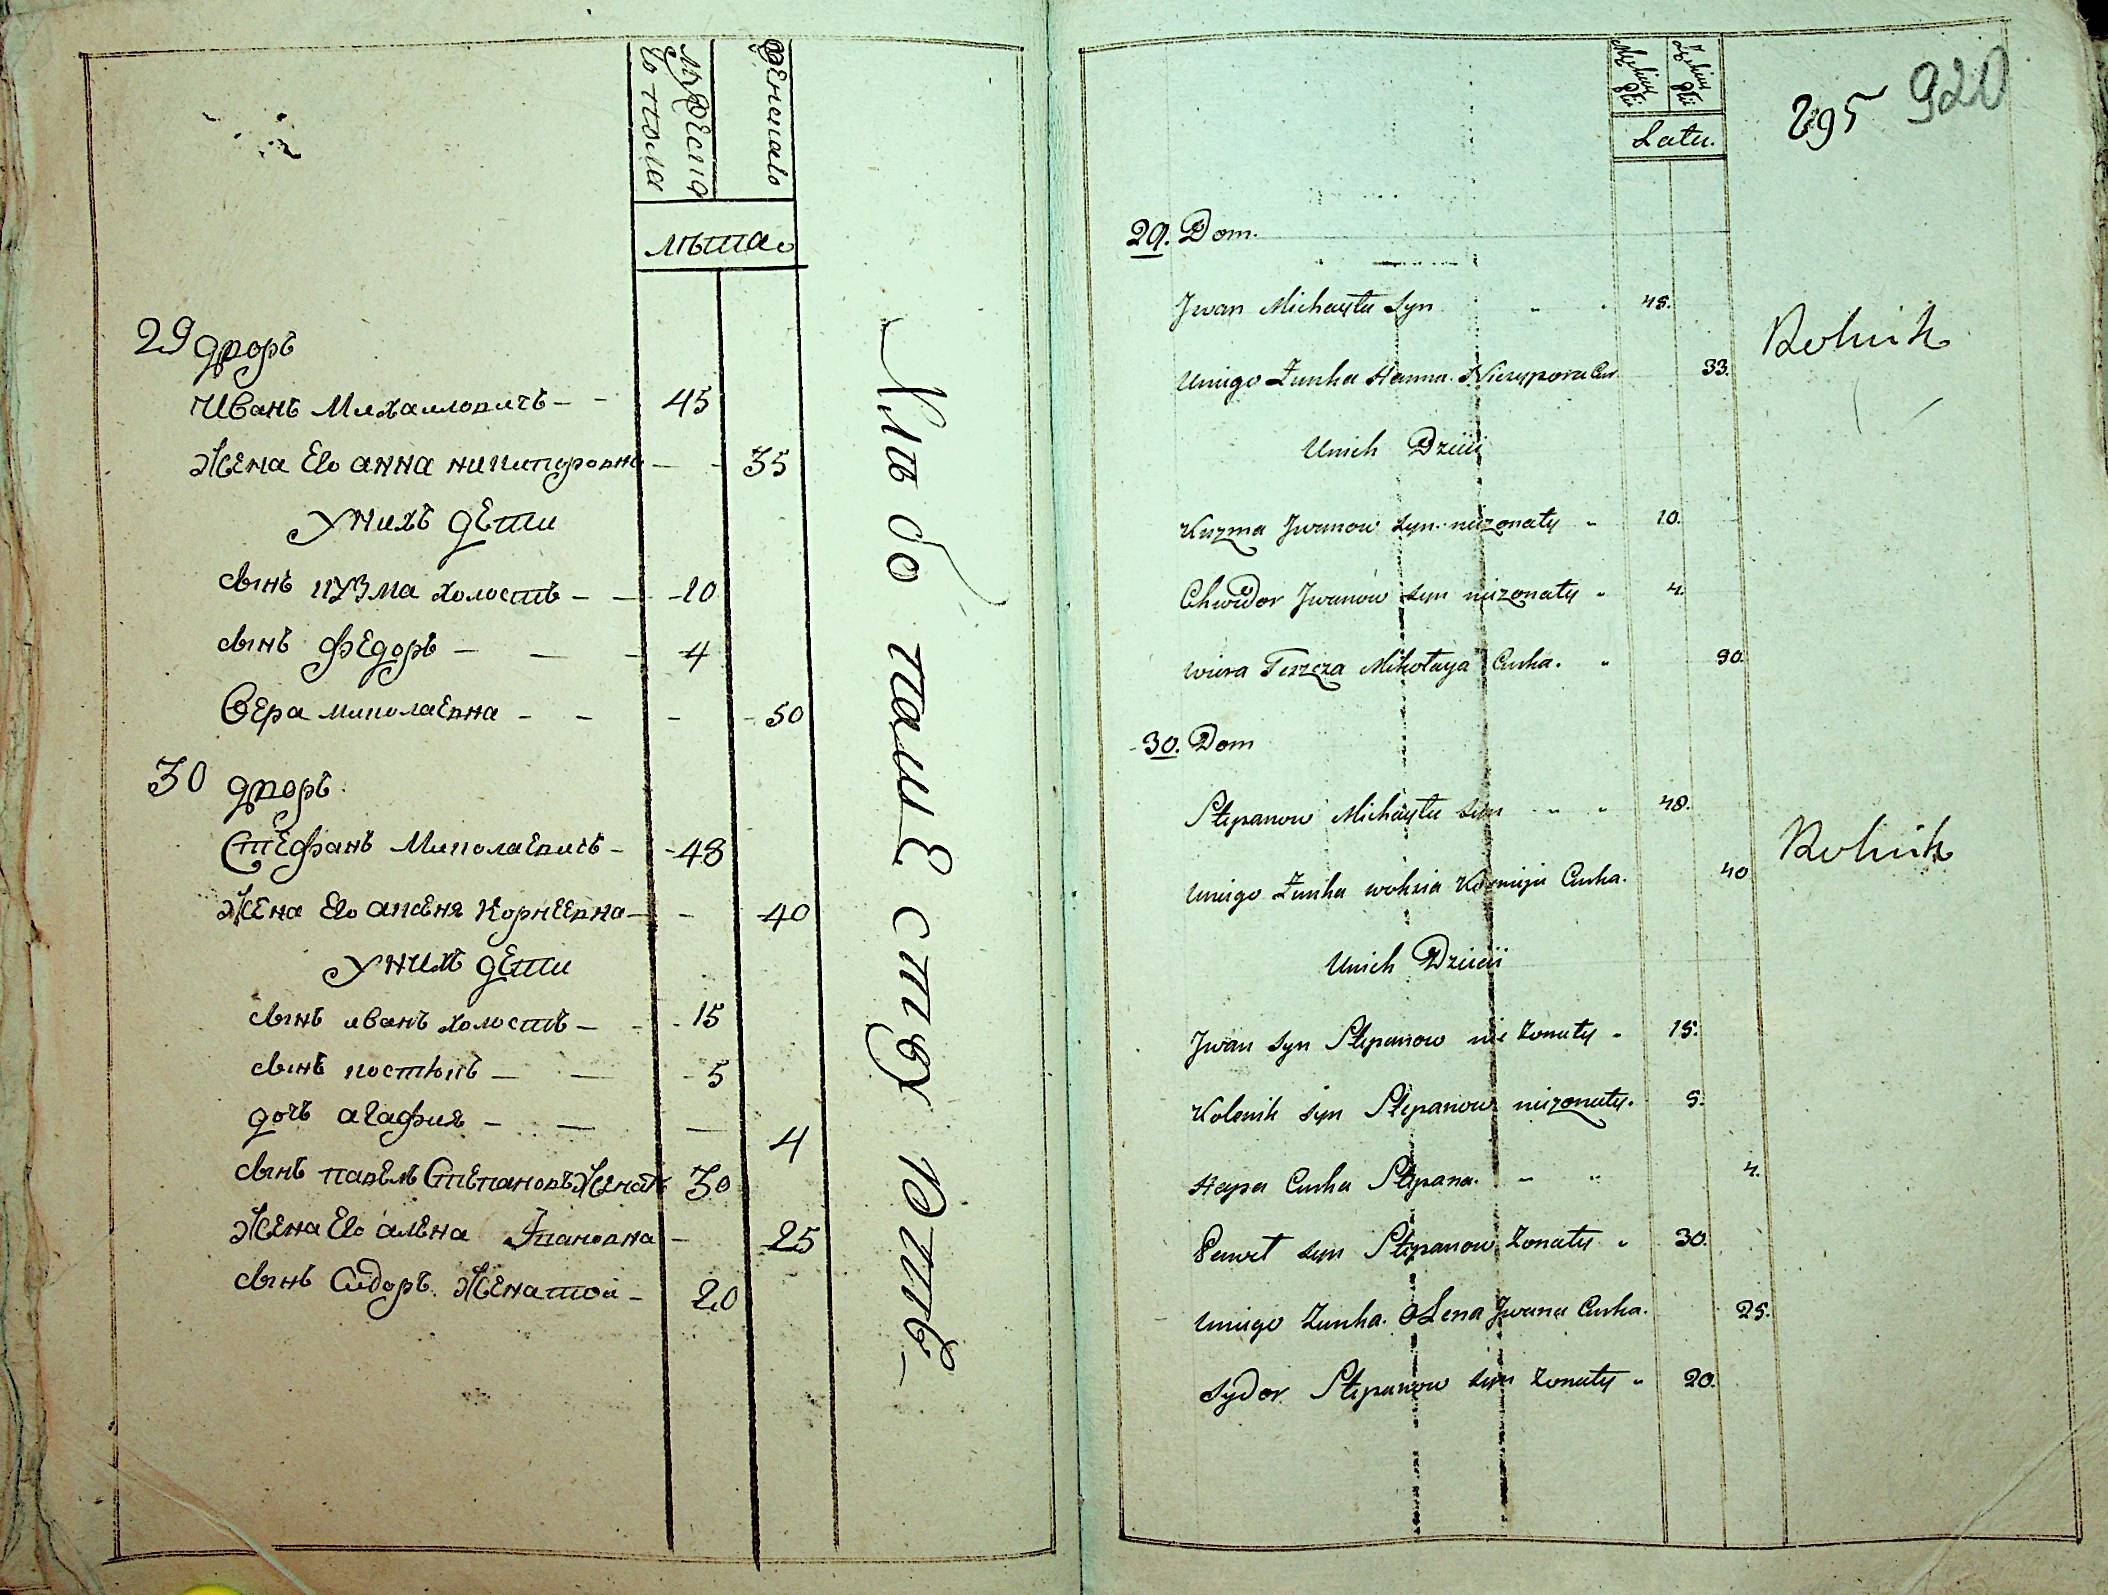 мужеска
го пола
женскаго
лѣта
29 дворъ
Иванъ Михаиловичъ - - 45
Жена Его анна никипоровна - - 35
Унихъ дети
сынъ кузма холостъ - - 10
сынъ федоръ - - - 4
Вера миколаевна - - - - 50
30 дворъ
Стефанъ Миколаевичъ - - 48
Жена Его апсеня корнеевна - - 40
Унихъ дети
сынъ иванъ холостъ - - - 15
сынъ костюкъ - - - 5
дочъ агафия - - - 4
сынъ павелъ Степановъ Женатъ 30
Жена Его алена Ивановна - 25
сынъ Сидоръ Женатои - 20
Хлебо пашествуютъ
Męskiey Płci
Żeńskiey Płci
Latu.
295 920
29. Dom.
Jwan Michayłu Syn " " 45.
Rolnik
Uniego Żunka Hanna Niczypora Curka 33.
Unich Dzieci
Kuzma Jwanow Syn nieżonaty " 10.
Chwedor Jwanow Syn nieżonaty " 4.
Wiera Teszcza Mikołaya Curka. "
30. Dom
Stepanow Michayłu Syn " " 48.
Rolnik
Uniego Żunka Kornija Curka. 40
Unich Dzieci
Jwan Syn Stepanow nie żonaty " 15.
Syn Stepanow nieżonaty. 5.
Hapa Curka Stepana. " " 4.
Paweł Syn Stepanow żonaty " 30.
Uniego Żunka. Olena Jwana Curka. 25.
Sydor Stepanow Syn żonaty " 20.